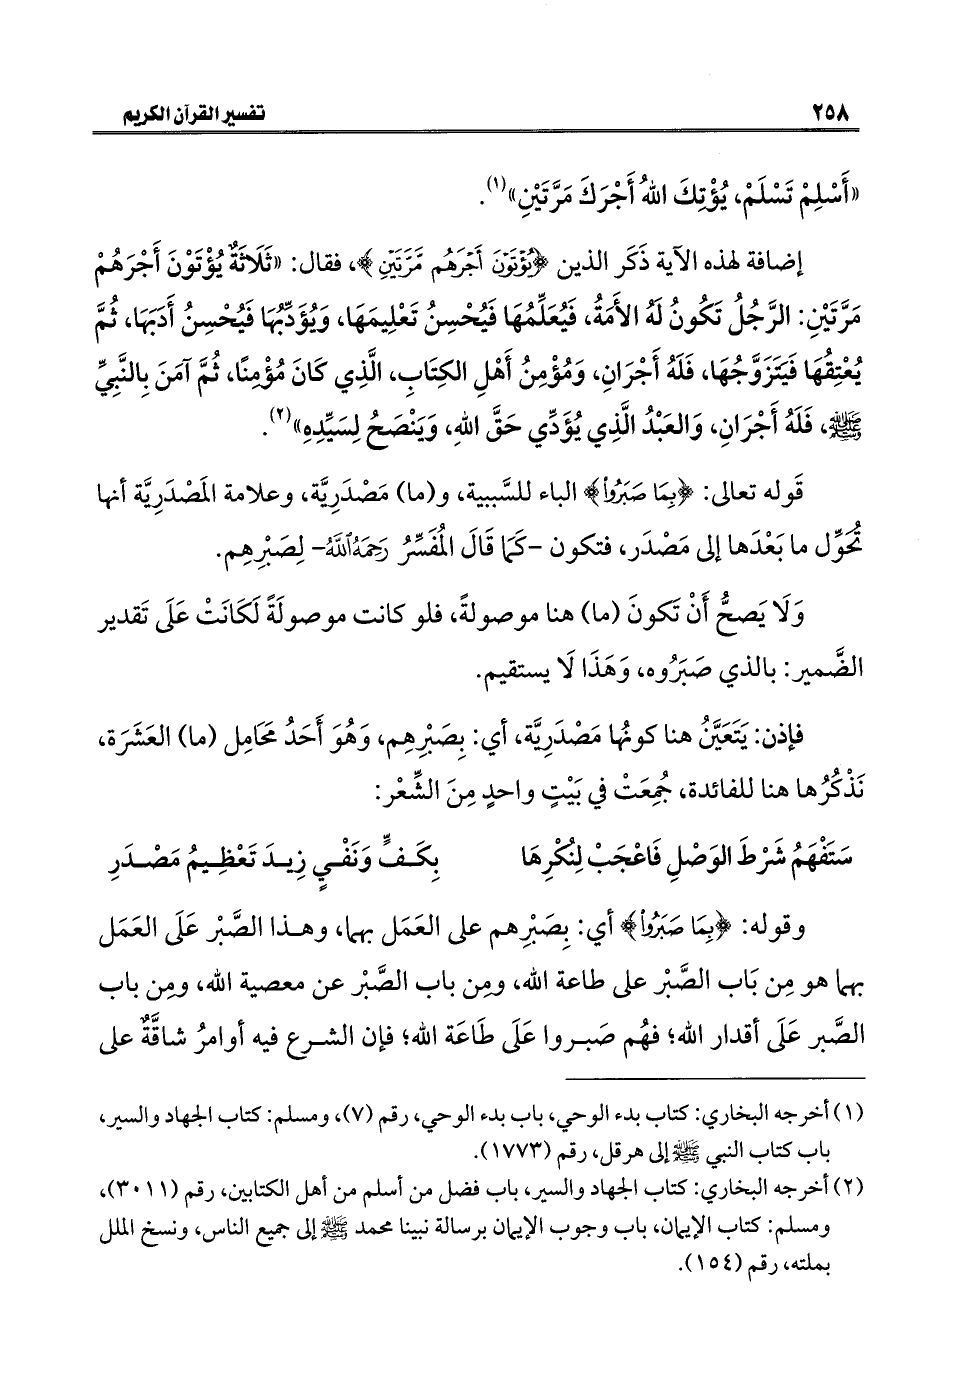 ٢٥٨ تفسير القرآن الكريم
«أَسْلِمْ تَسْلَمْ، يُؤْتِكَ اللهُ أَجْرَكَ مَرَّتَيْنِ»(١).
إضافة لهذه الآية ذَكَر الذين ﴿يُؤْتَوْنَ أَجْرَهُم مَّرَّتَيْنِ﴾، فقال: «ثَلَاثَةٌ يُؤْتَوْنَ أَجْرَهُمْ
مَرَّتَيْنِ: الرَّجُلُ تَكُونُ لَهُ الأَمَةُ، فَيُعَلِّمُهَا فَيُحْسِنُ تَعْلِيمَهَا، وَيُؤَدِّبُهَا فَيُحْسِنُ أَدَبَهَا، ثُمَّ
يُعْتِقُهَا فَيَتَزَوَّجُهَا، فَلَهُ أَجْرَانِ، وَمُؤْمِنُ أَهْلِ الكِتَابِ، الَّذِي كَانَ مُؤْمِنًا، ثُمَّ آمَنَ بِالنَّبِيِّ
ﷺ، فَلَهُ أَجْرَانِ، وَالعَبْدُ الَّذِي يُؤَدِّي حَقَّ اللهِ، وَيَنْصَحُ لِسَيِّدِهِ»(٢).
قَوله تعالى: ﴿بِمَا صَبَرُوا﴾ الباء للسَّببية، و(ما) مَصْدَريَّة، وعلامة المَصْدَريَّة أنها
تُحَوِّل ما بَعْدَها إلى مَصْدَر، فتكون -كَمَا قَالَ المُفَسِّرُ رَحِمَهُ اللَّهُ- لِصَبْرِهِم.
وَلَا يَصحُّ أَنْ تَكونَ (ما) هنا موصولةً، فلو كانت موصولَةً لَكَانَتْ عَلَى تَقدير
الضَّمير: بالذي صَبَرُوه، وَهَذَا لَا يستقيم.
فإذن: يَتَعَيَّنُ هنا كونُها مَصْدَريَّة، أي: بِصَبْرِهِم، وَهُوَ أَحَدُ مَحَامِل (ما) العَشَرَة،
نَذْكُرُها هنا للفائدة، جُمِعَتْ في بَيْتٍ واحدٍ مِنَ الشِّعْر:
سَتَفْهَمُ شَرْطَ الوَصْلِ فَاعْجَبْ لِنُكْرِهَا بِكَفٍّ وَنَفْيٍ زِيدَ تَعْظِيمُ مَصْدَرِ
وقوله: ﴿بِمَا صَبَرُوا﴾ أي: بِصَبْرِهم على العَمَل بهما، وهذا الصَّبْر عَلَى العَمَل
بهما هو مِن بَاب الصَّبْر على طاعة الله، ومِن باب الصَّبْر عن معصية الله، ومِن باب
الصَّبر عَلَى أقدار الله؛ فهُم صَبروا عَلَى طَاعَة الله؛ فإن الشرع فيه أوامرُ شاقَّةٌ على
(١) أخرجه البخاري: كتاب بدء الوحي، باب بدء الوحي، رقم (٧)، ومسلم: كتاب الجهاد والسير،
باب كتاب النبي ﷺ إلى هرقل، رقم (١٧٧٣).
(٢) أخرجه البخاري: كتاب الجهاد والسير، باب فضل من أسلم من أهل الكتابين، رقم (٣٠١١)،
ومسلم: كتاب الإيمان، باب وجوب الإيمان برسالة نبينا محمد ﷺ إلى جميع الناس، ونسخ الملل
بملته، رقم (١٥٤).